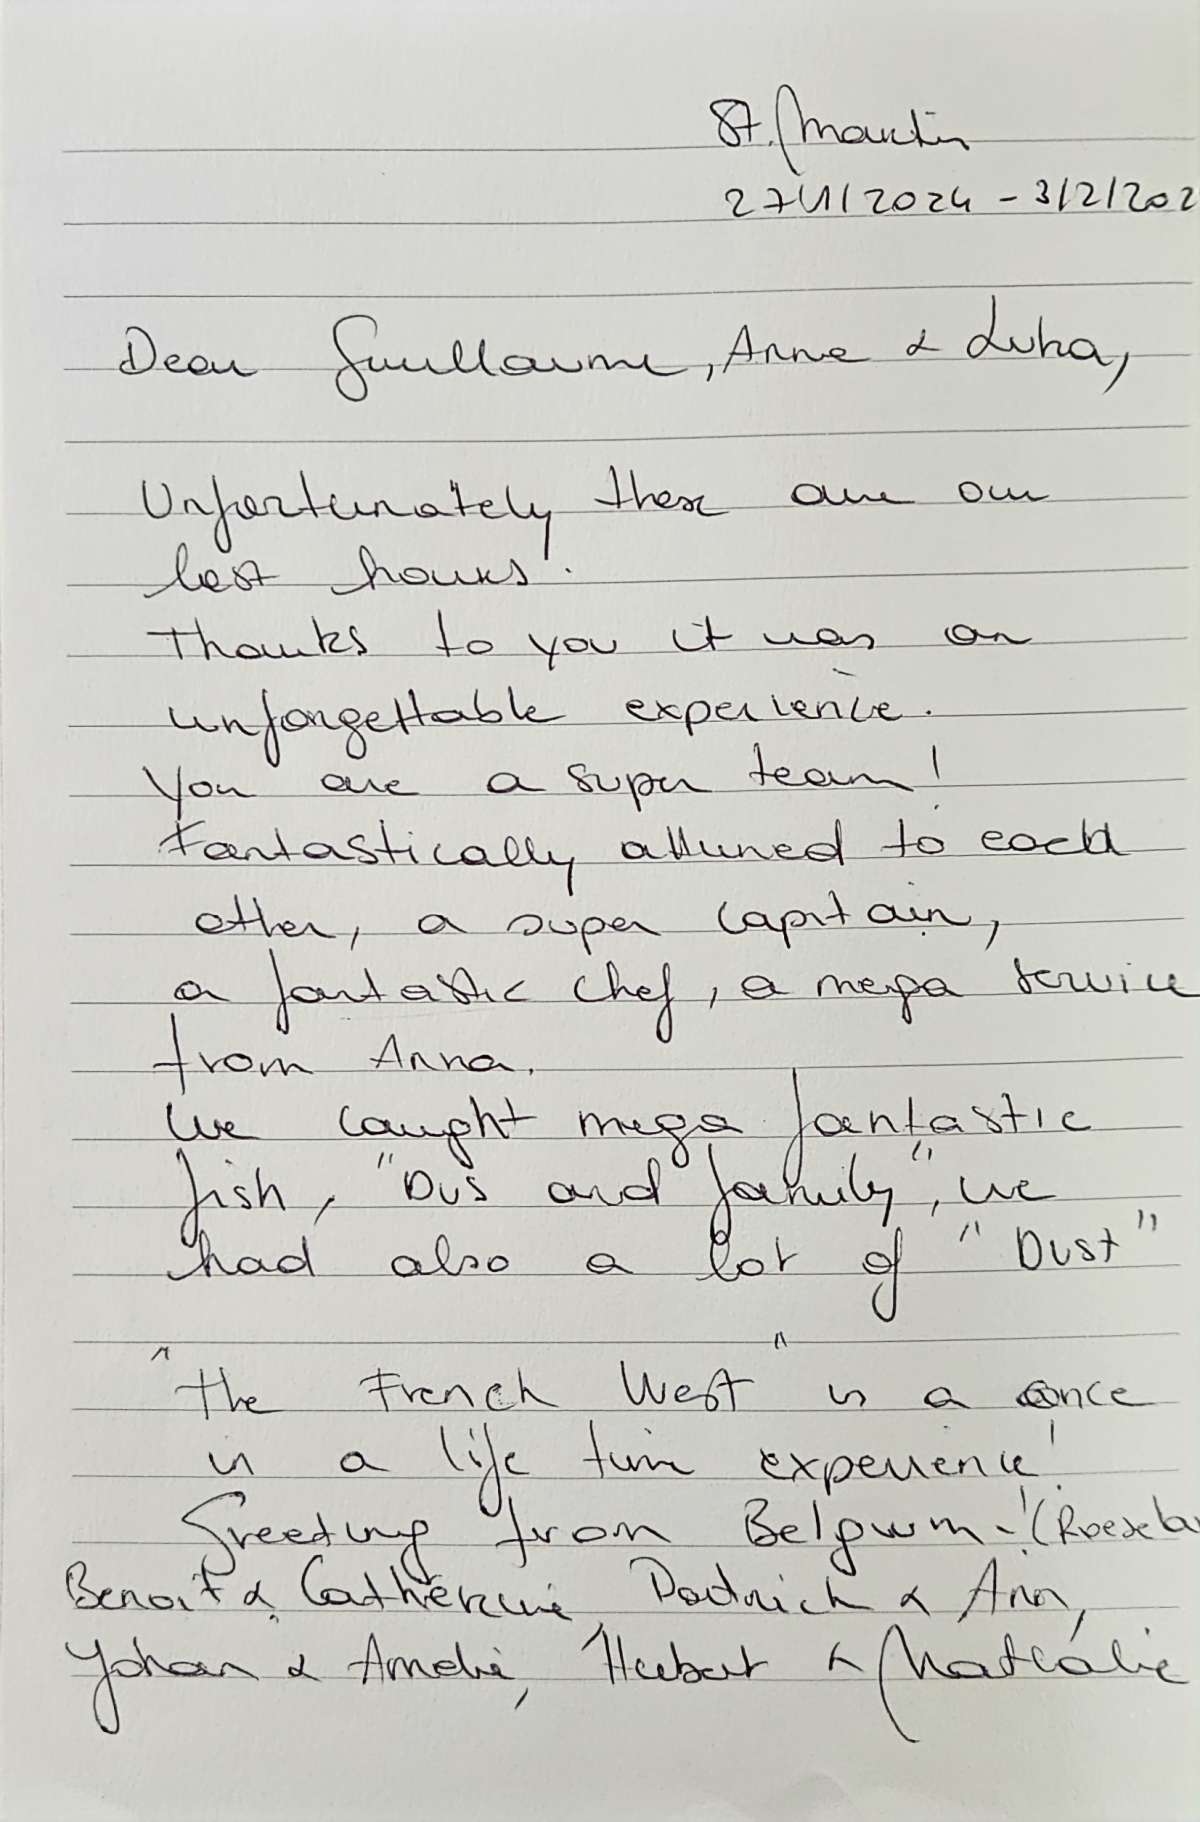 St. Martin
27/1/2024 - 3/2/202
Dear Guillaume, Anne & Luka,
Unfortunately these are our
last hours.
Thanks to you it was an
unforgettable experience.
You are a super team!
Fantastically attuned to each
other, a super captain,
a fantastic chef, a mega service
from Anna.
We caught mega fantastic
fish, "Dus and family", we
had also a lot of "Dust"
"The French West" is a once
in a life time experience!
Greeting from Belgium! (Roesela
Benoit & Catherine, Patrick & Ann,
Yohan & Amelie, Hubert & Nathalie